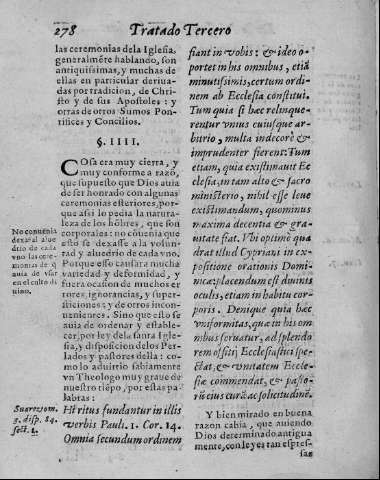 278 Tratado Tercero
las ceremonias dela Iglesia,
generalmẽte hablando, son
antiquissimas, y muchas de
ellas en particular deriua-
das por tradicion, de Chri-
sto y de sus Apostoles: y
otras de otros Sumos Pon-
tifices y Concilios.
§. IIII.
COsa era muy cierta, y
muy conforme a razõ,
que supuesto que Dios auia
de ser honrado con algunas
ceremonias esteriores, por-
que assi lo pedia la natura-
leza de los hõbres, que son
corporales: no cõuenia que
esto se dexasse a la volun-
tad, y aluedrio de cada vno.
Porque esso causara mucha
variedad y deformidad, y
fuera ocasion de muchos er
rores, ignorancias, y super-
sticiones: y de otros incon-
uenientes. Sino que esto se
auia de ordenar y estable-
cer, por ley dela santa Igle-
sia, y disposicion delos Per-
lados y pastores della: co-
mo lo aduirtio sabiamente
vn Theologo muy graue de
nuestro tiẽpo, por estas pa-
labras:
Hi ritus fundantur in illis
verbis Pauli. 1. Cor. 14.
Omnia secundum ordinem
No conuenia
dexar al alue
drio de cada
vno las cere-
monias de q̃
auia de vsar
en el culto di
uino.
Suarez tom.
3. disp. 84.
sect. 1.
fiant in vobis: & ideo o-
portet in his omnibus, etiã
minutissimis, certum ordi-
nem ab Ecclesia constitui.
Tum quia si hæc relinque-
rentur vnius cuiusque ar-
bitrio, multa indecorè &
imprudenter fierent: Tum
etiam, quia existimauit Ec
clesia, in tam alto & sacro
ministerio, nihil esse leue
existimandum, quominus
maxima decentia & gra-
uitate fiat. Vbi optimè qua
drat illud Cypriani in ex-
positione orationis Domi-
nicæ: placendum est diuinis
oculis, etiam in habitu cor-
poris. Denique quia hæc
vniformitas, quæ in his om
nibus seruatur, ad splendo
rem officij Ecclesiastici spe-
ctat, & vnitatem Eccle-
siæ commendat, & pasto-
rũ eius curã ac solicitudinẽ.
Y bien mirado en buena
razon cabia, que auiendo
Dios determinado antigua
mente, con leyes tan espres-
sas